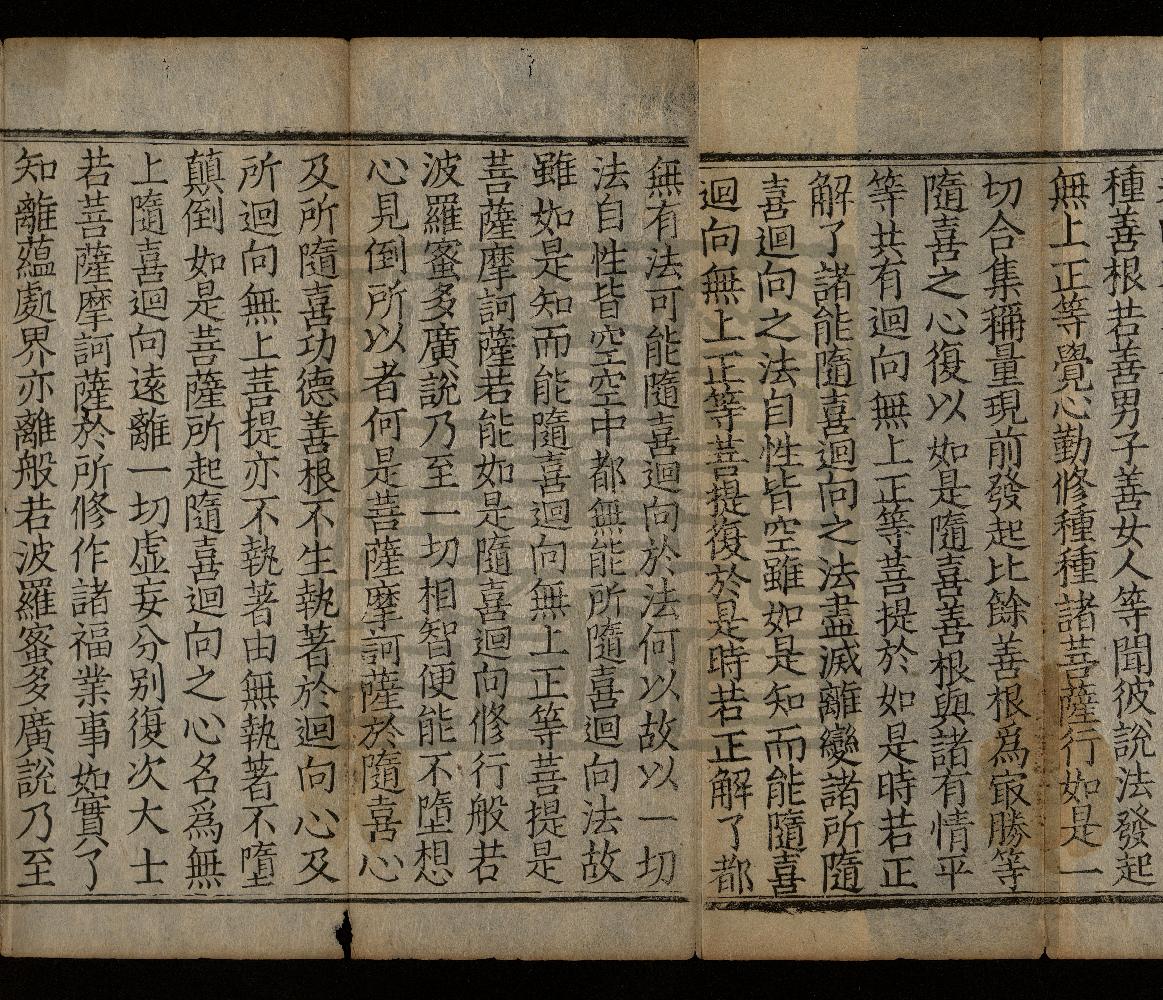 種善根若善男子善女人等聞彼說法發起
無上正等覺心勤修種種諸菩薩行如是一
切合集稱量現前發起比餘善根爲㝡勝等
隨喜之心復以如是隨喜善根與諸有情平
等共有迴向無上正等菩提於如是時若正
解了諸能隨喜迴向之法盡滅離變諸所隨
喜迴向之法自性皆空雖如是知而能隨喜
迴向無上正等菩提復於是時若正解了都
無有法可能隨喜迴向於法何以故以一切
法自性皆空空中都無能所隨喜迴向法故
雖如是知而能隨喜迴向無上正等菩提是
菩薩摩訶薩若能如是隨喜迴向修行般若
波羅蜜多廣說乃至一切相智便能不墮想
心見倒所以者何是菩薩摩訶薩於隨喜心
及所隨喜功德善根不生執著於迴向心及
所迴向無上菩提亦不執著由無執著不墮
顛倒如是菩薩所起隨喜迴向之心名爲無
上隨喜迴向遠離一切虛妄分別復次大士
若菩薩摩訶薩於所修作諸福業事如實了
知離蘊處界亦離般若波羅蜜多廣說乃至